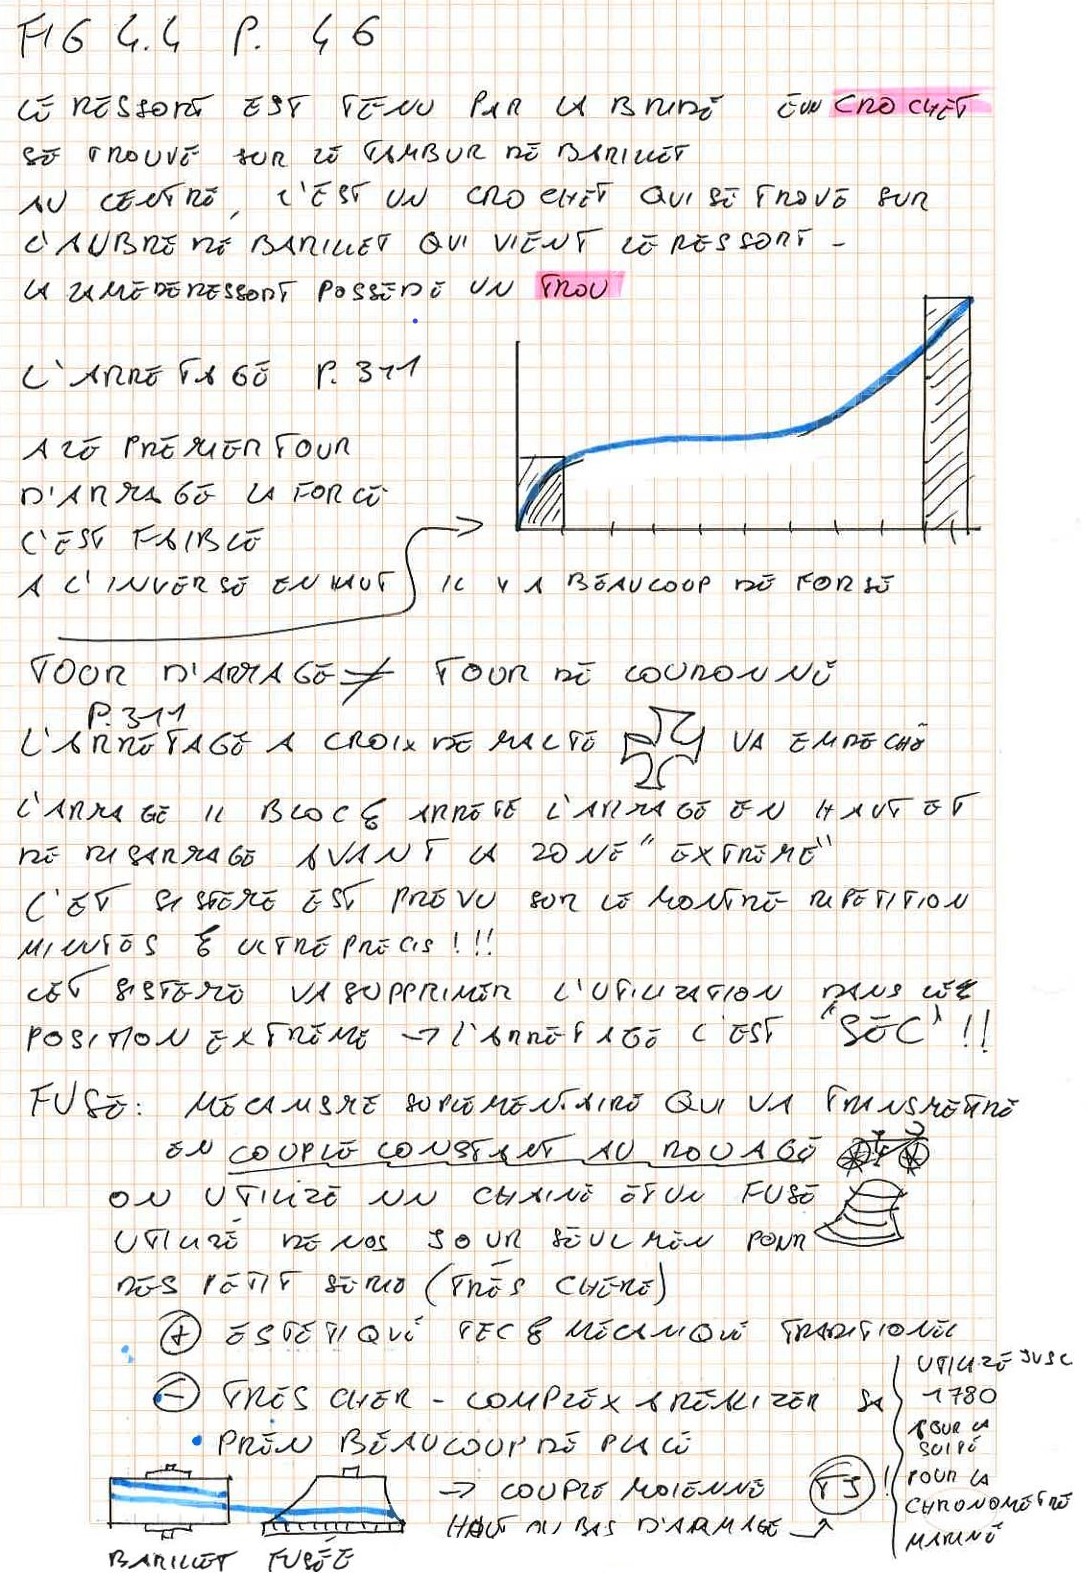 FIG 4.4 P. 46
LE RESSORT EST TENU PAR LA BRIDE ÉUN CROCHET
SE TROUVE SUR LE TAMBUR DE BARILLET
AU CENTRE, C'EST UN CROCHET QUI SE TROVE SUR
L'AUBRE DE BARILLET QUI VIENT LE RESSORT -
LA LAME DE RESSORT POSSEDE UN TROU
L'ARRETAGE P. 311
A LE PREMIER TOUR
D'ARMAGE LA FORCE
C'EST FAIBLE
A L'INVERSE EN HAUT IL Y A BEAUCOUP DE FORSE
TOUR D'ARMAGE ≠ TOUR DE COURONNE
P. 311
L'ARRETAGE A CROIX DE MALTE VA EMPECHE
L'ARMAGE IL BLOC & ARRETE L'ARMAGE EN HAUT ET
DE DISARMAGE AVANT LA ZONE "EXTREME"
C'ET SISTEME EST PREVU SUR LE MONTRE REPETITION
MINUTES & ULTRE PRECIS!!!
CET SISTEME VA SUPPRIMER L'UTILIZATION DANS LES
POSITION EXTREME → L'ARRETAGE C'EST "SEC"!!
FUSE: MECANISME SUPLEMENTAIRE QUI VA TRANSMETTRE
EN COUPLE CONSTANT AU ROUAGE
ON UTILIZE UN CHAINE ET UN FUSE
UTILIZE DE NOS JOUR SEULMEN POUR
DES PETIT SERIE (TRÈS CHERE)
+ ESTETIQUE TEC & MECANIQUE TRADITIONEL
- TRES CHER - COMPLEX A REALIZER SA
• PREN BEAUCOUP DE PLACE
→ COUPLE MOIENNE TJ!
HAUT OU BAS D'ARMAGE
UTILIZE JUSC
1780
POUR LA
POUR LA
CHRONOMETRE
MARINE
BARILLET FUSÉE